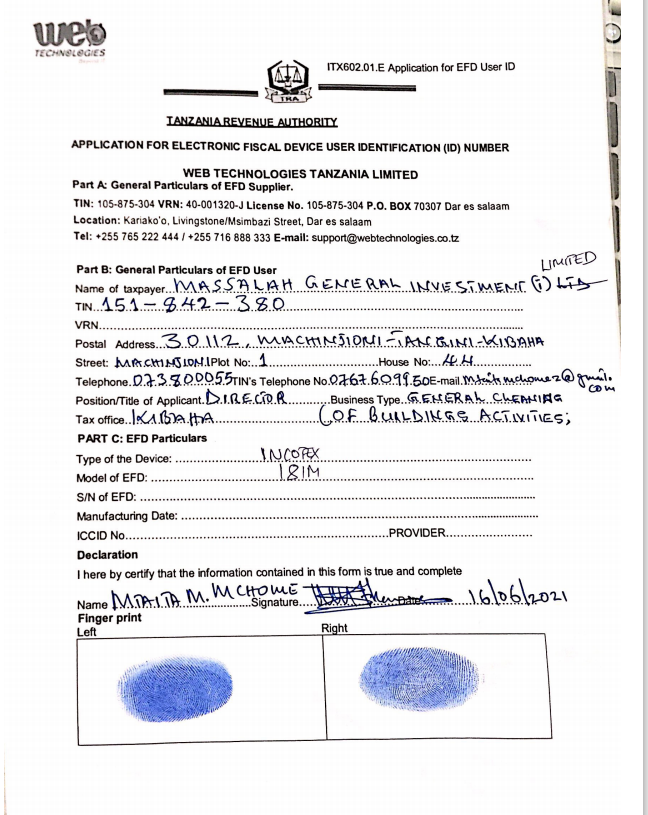 web
TECHNOLOGIES
ITX602.01.E Application for EFD User ID
TRA
TANZANIA REVENUE AUTHORITY
APPLICATION FOR ELECTRONIC FISCAL DEVICE USER IDENTIFICATION (ID) NUMBER
WEB TECHNOLOGIES TANZANIA LIMITED
Part A: General Particulars of EFD Supplier.
TIN: 105-875-304 VRN: 40-001320-J License No. 105-875-304 P.O. BOX 70307 Dar es salaam
Location: Kariako'o, Livingstone/Msimbazi Street, Dar es salaam
Tel: +255 765 222 444 / +255 716 888 333 E-mail: support@webtechnologies.co.tz
Part B: General Particulars of EFD User
LIMITED
Name of taxpayer MASSALAH GENERAL INVESTMENT (T) LTD
TIN 151-842-380
VRN
Postal Address 30112, MACHINJIONI-TANGINI-KIBAHA
Street: MACHINJIONI Plot No: 1 House No: 44
Telephone. 0738000055 TIN's Telephone No. E-mail.
Position/Title of Applicant. DIRECTOR Business Type. GENERAL CLEANING
Tax office. KIBAHA (OF BUILDINGS ACTIVITIES;
PART C: EFD Particulars
Type of the Device: INCOTEX
Model of EFD: 181M
S/N of EFD:
Manufacturing Date:
ICCID No PROVIDER
Declaration
I here by certify that the information contained in this form is true and complete
Name MTAITA M. MCHOME Signature 16/06/2021
Finger print
Left Right